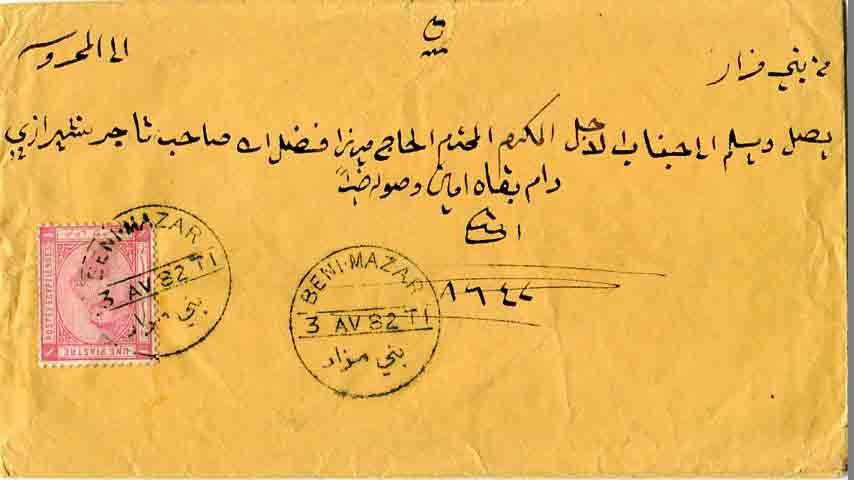 من بني مزار
الى المحروسه
يصل ويسلم الى جناب الاجل المكرم المحترم الحاج ميرزا فضل الله صاحب تاجر شيرازي
دام بقاه امين وصوله
٨٦٤٢
BENI·MAZAR
3 AV 82 T1
بني مزار
BENI·MAZAR
3 AV 82 T1
بني مزار
POSTES EGYPTIENNES
UNE PIASTRE